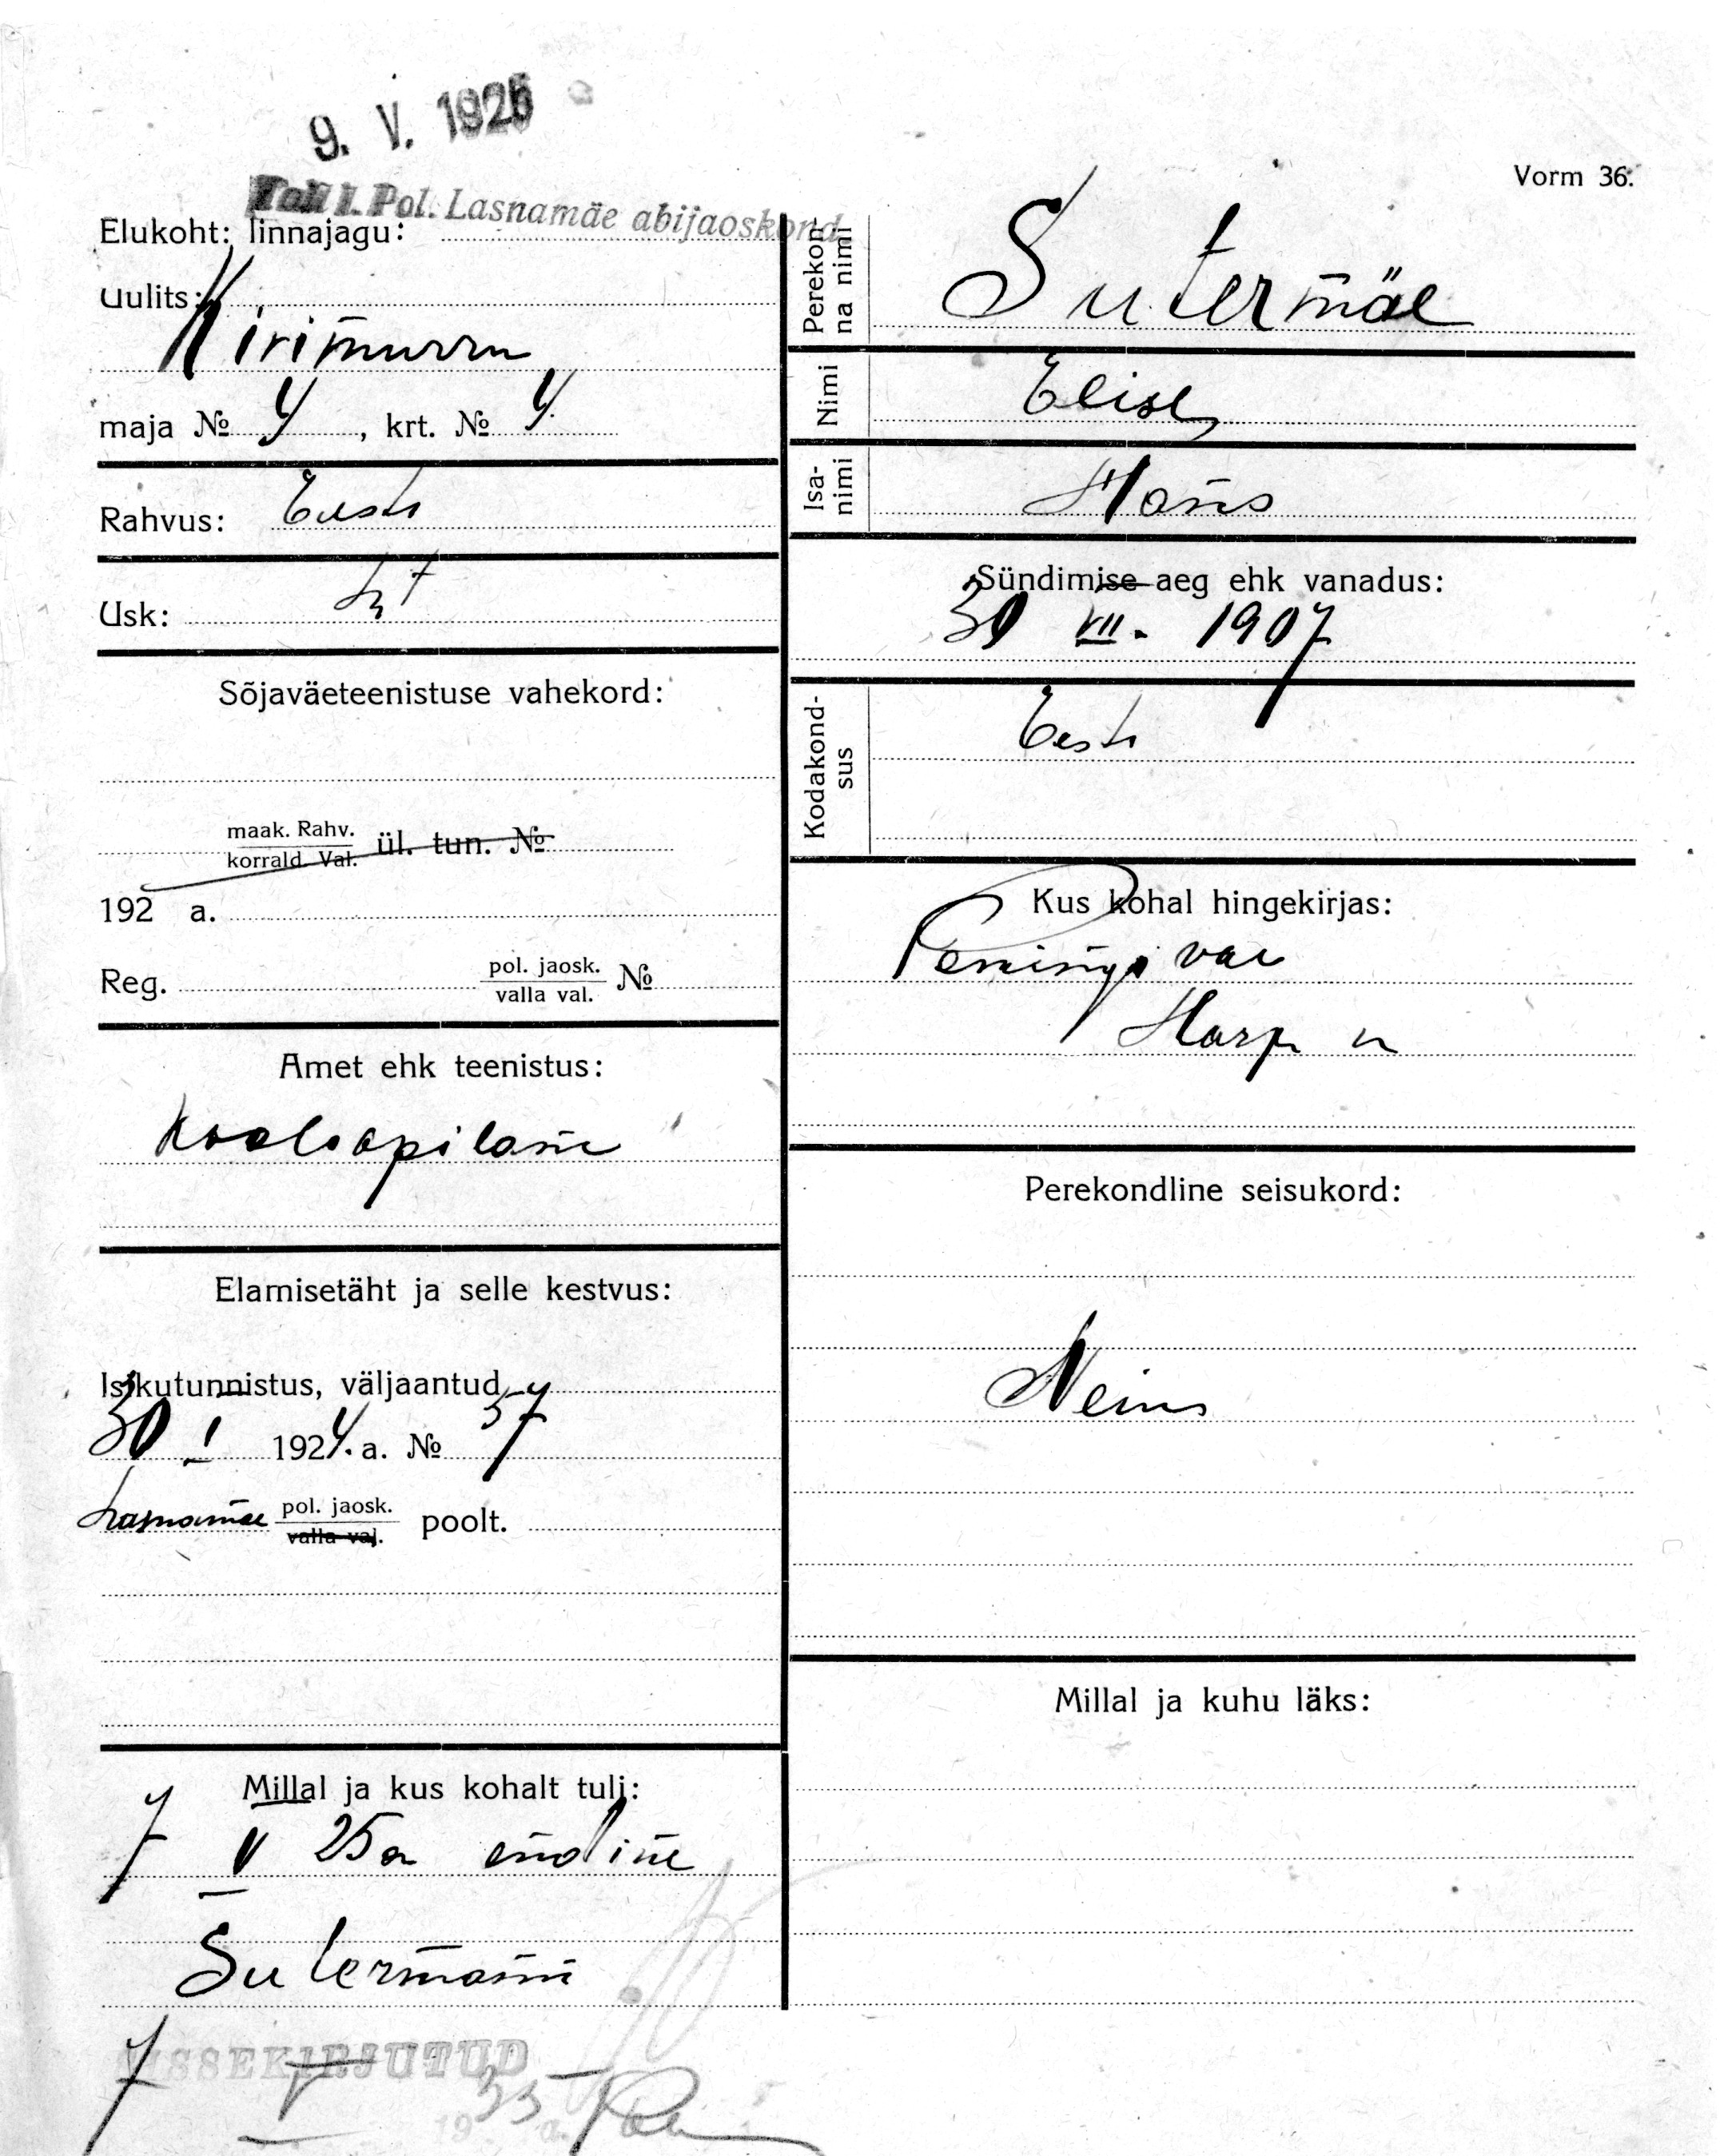 9. V. 1925
Tall. I. Pol. Lasnamäe abijaoskond.
Vorm 36.
Elukoht: linnajagu:
Uulits: Kirimurru
maja № 4, krt. № 4
Rahvus: Eesti
Usk: Lut
Sõjaväeteenistuse vahekord:
maak. Rahv.
korrald. Val. ül. tun. №
192 a.
Reg. pol. jaosk. №
valla val.
Amet ehk teenistus:
Kooliõpilane
Elamisetäht ja selle kestvus:
Isikutunnistus, väljaantud
30 I 1924. a. № 57
Lasnamäe pol. jaosk. poolt.
valla val.
Millal ja kus kohalt tuli:
7 V 25 a endine
Sutermann
SISSEKIRJUTUD
7 V
19 a.
Perekonna nimi
Sutermäe
Nimi
Elise
Isanimi
Hans
Sündimise aeg ehk vanadus:
30 VII. 1907
Kodakondsus
Eesti
Kus kohal hingekirjas:
Peningi val
Harju
Perekondline seisukord:
Neiu
Millal ja kuhu läks: